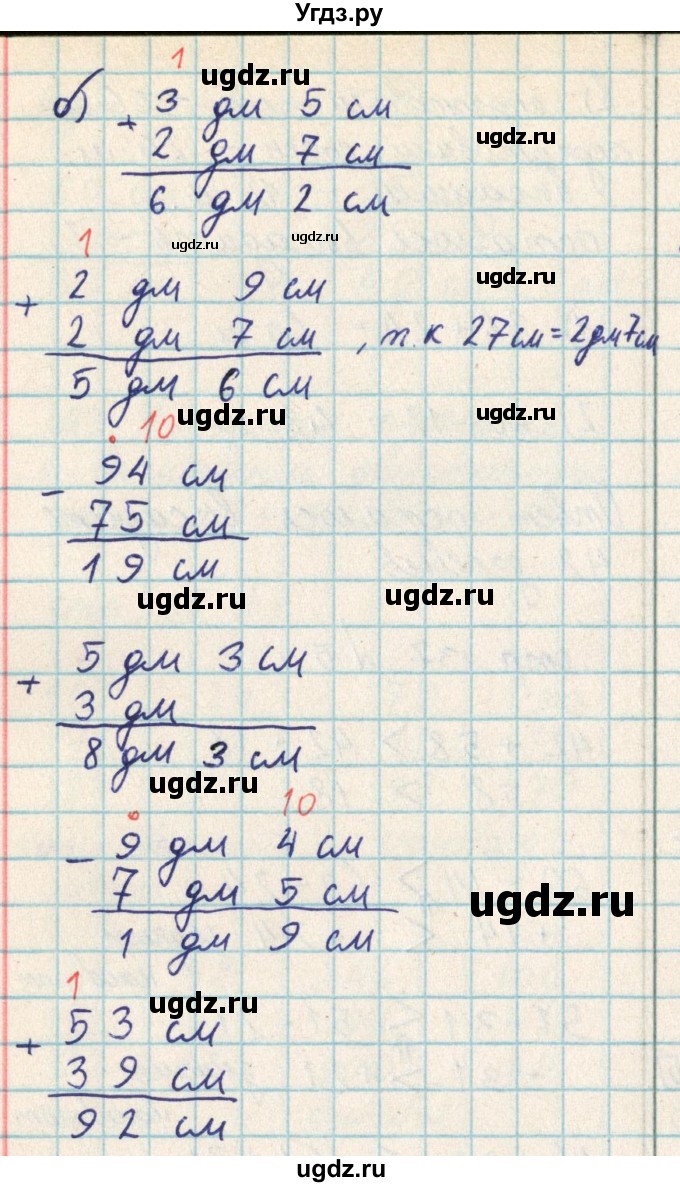 Угдз.ру
1
ugdz.ru
б) + 3 дм 5 см
ugdz.ru
2 дм 7 см
6 дм 2 см
ugdz.ru ugdz.ru
1
+ 2 дм 9 см
ugdz.ru
2 дм 7 см , т.к 27см=2дм7см
5 дм 6 см
ugdz.ru ugdz.ru
. 10
- 94 см
75 см
19 см
ugdz.ru ugdz.ru
+ 5 дм 3 см
3 дм
8 дм 3 см
ugdz.ru
. 10
- 9 дм 4 см
7 дм 5 см
ugdz.ru
1 дм 9 см
1
ugdz.ru
+ 53 см
39 см
92 см
ugdz.ru
ugdz.ru